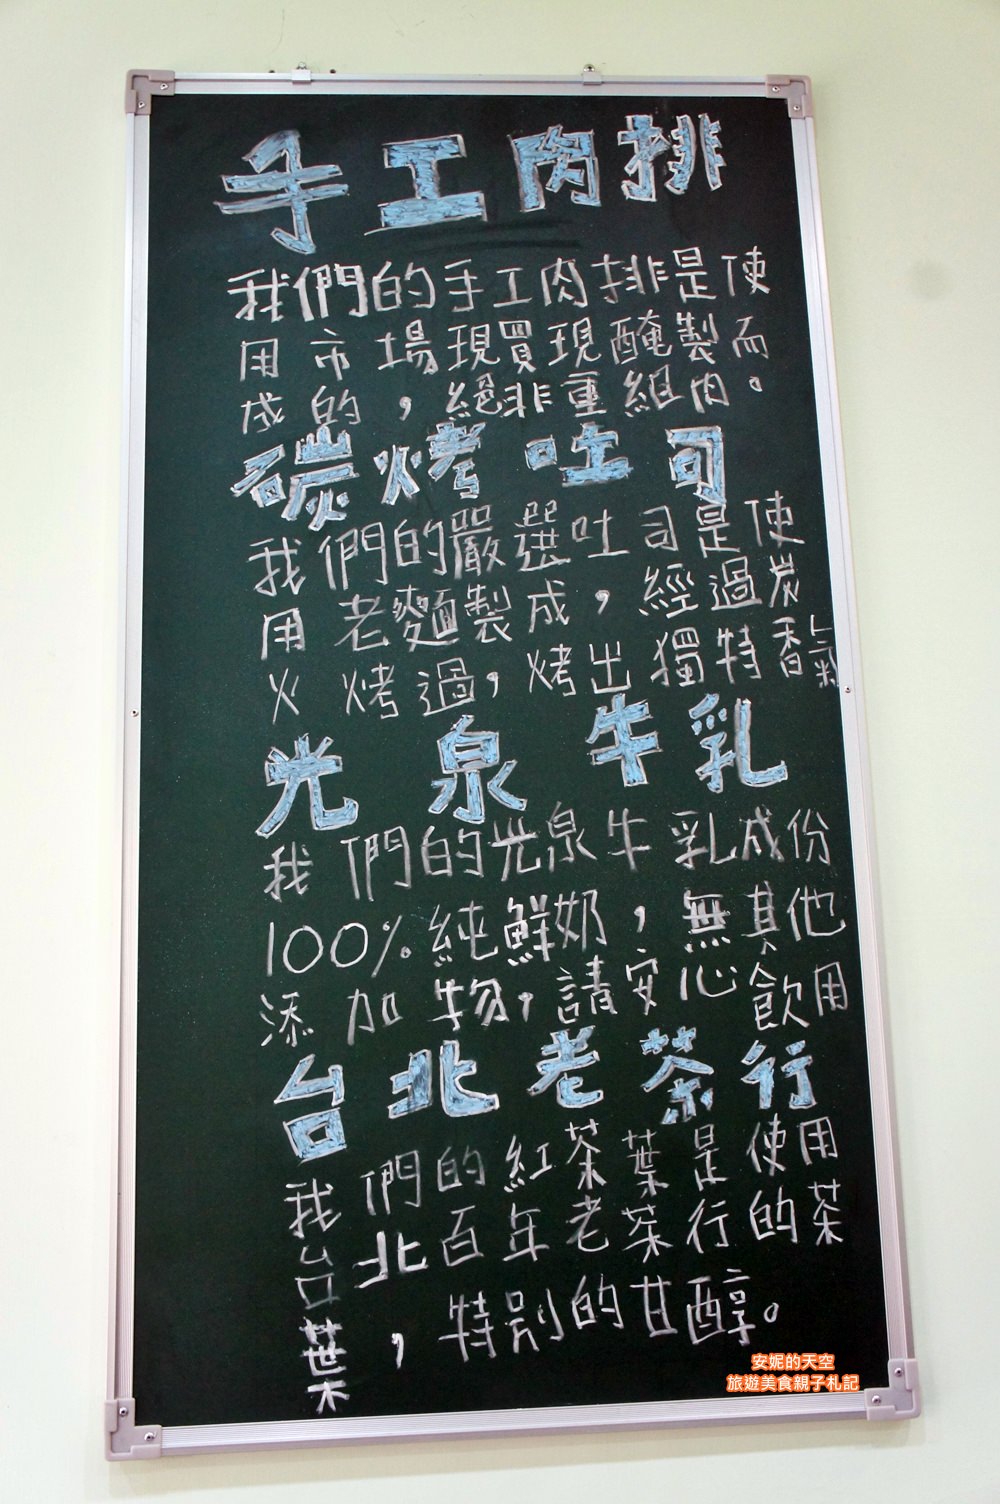 手工肉排
我們的手工肉排是使
用市場現買現醃製而
成的，絕非重組肉。
碳烤吐司
我們的嚴選吐司是使
用老麵製成，經過炭
火烤過，烤出獨特香氣
光泉牛乳
我們的光泉牛乳成份
100%純鮮奶，無其他
添加物，請安心飲用
台北老茶行
我們的紅茶葉是使用
台北百年老茶行的茶
葉，特別的甘醇。
安妮的天空
旅遊美食親子札記